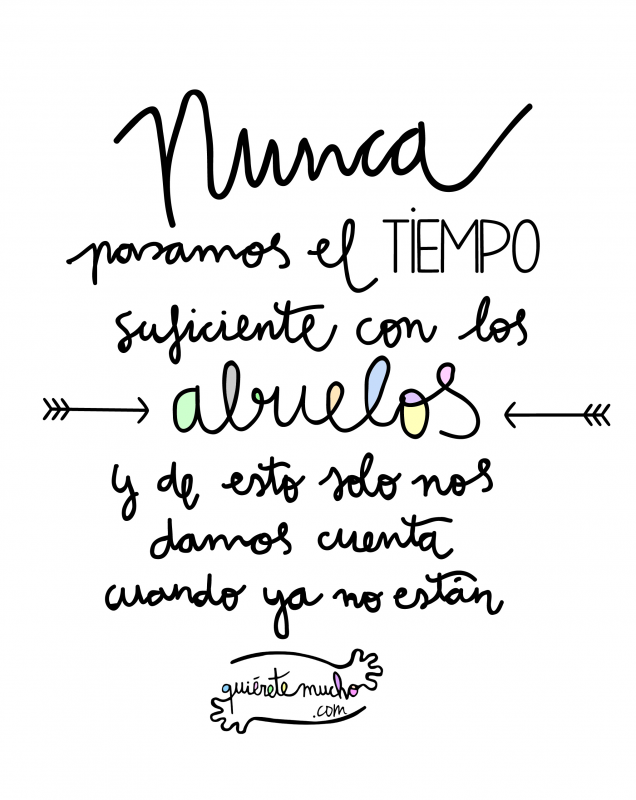 Nunca
pasamos el TiEMPO
suficiente con los
abuelos
y de esto solo nos
damos cuenta
cuando ya no están
quiérete mucho
.com